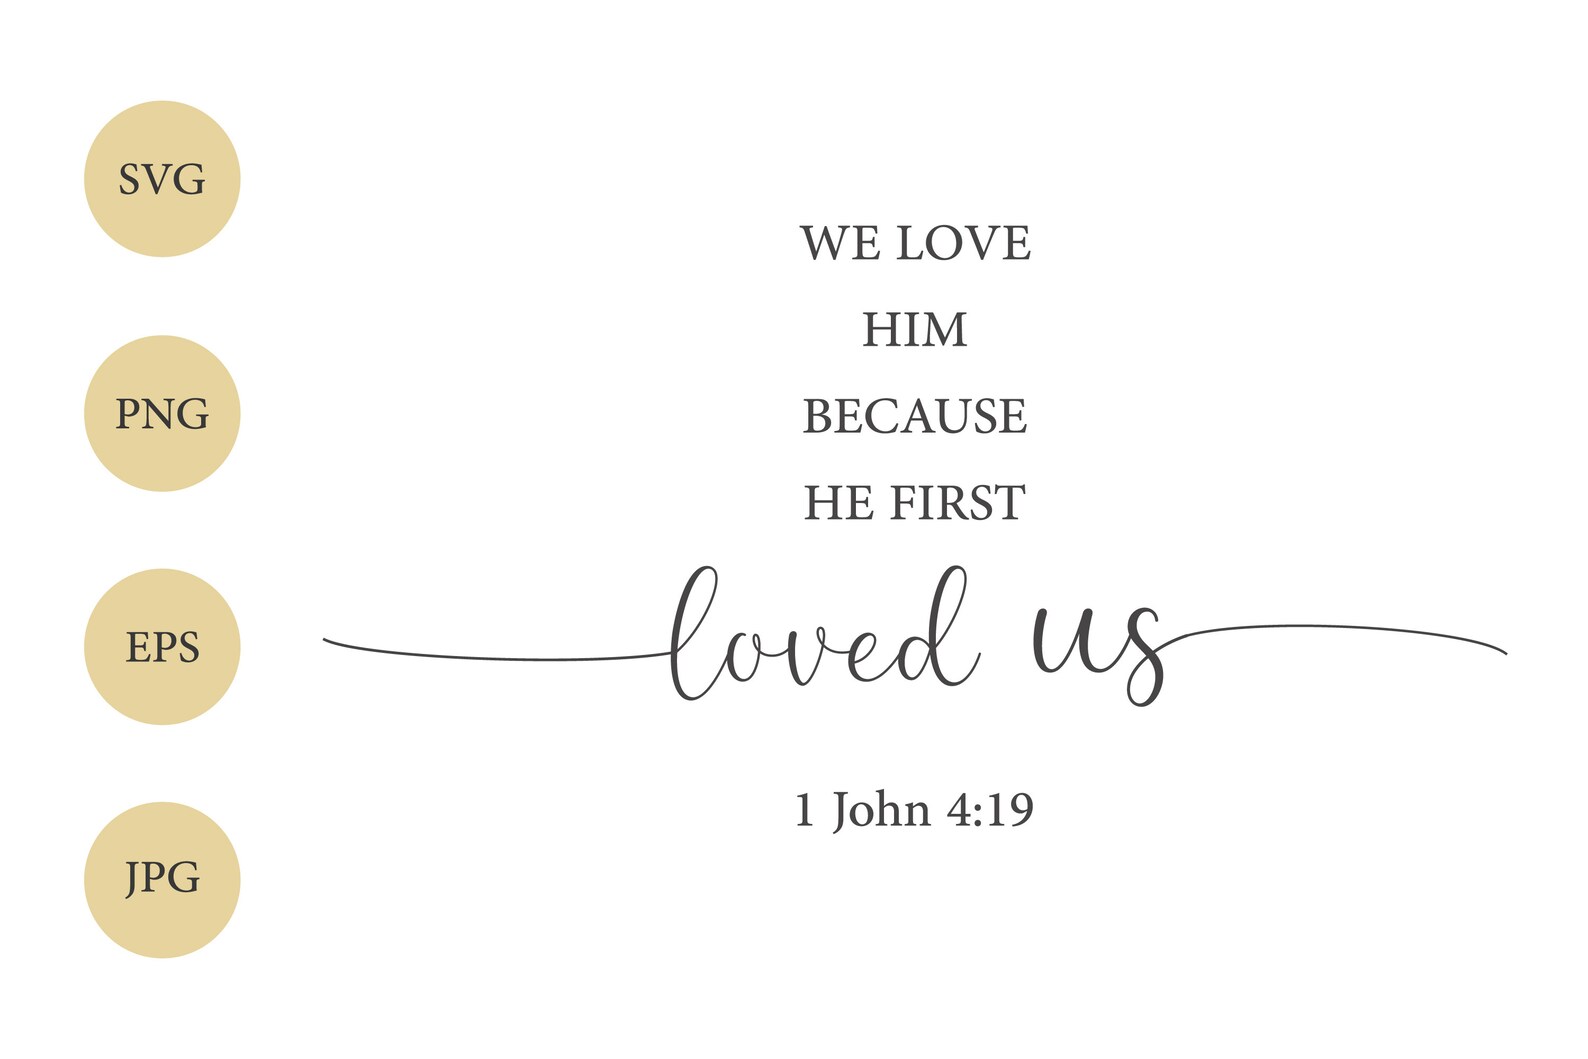 SVG
PNG
EPS
JPG
WE LOVE
HIM
BECAUSE
HE FIRST
loved us
1 John 4:19